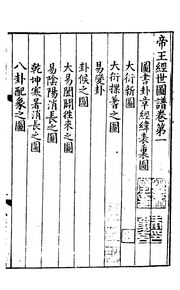 帝王經世圖譜卷第一
圖書卦章經緯表裏圖
大衍新圖
大衍揲蓍之圖
易變卦
卦候之圖
大易闔闢往來之圖
易陰陽消長之圖
乾坤寒暑消長之圖
八卦配象之圖